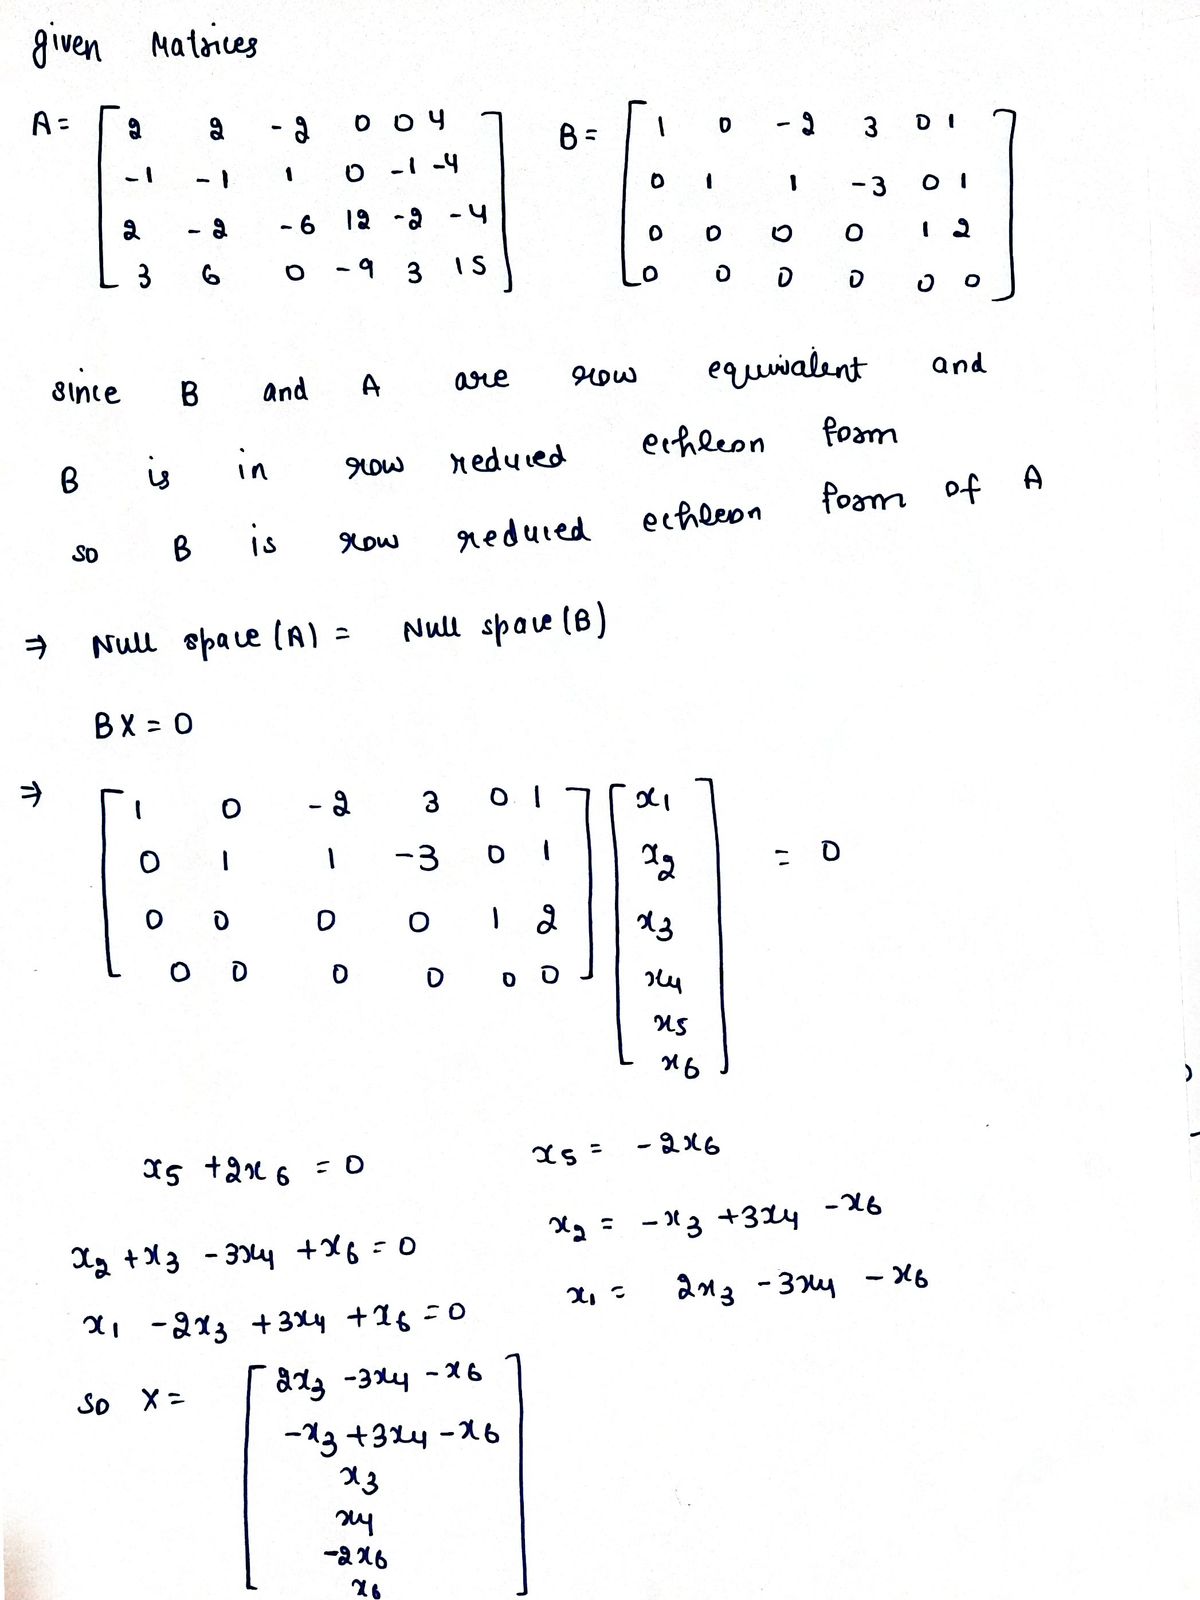 given Matrices
A = [ 2 2 -2 0 0 4     B = [ 1 0 -2 3 0 1
-1 -1 1 0 -1 -4     0 1 1 -3 0 1
2 -2 -6 12 -2 -4     0 0 0 0 1 2
3 6 0 -9 3 15 ]     0 0 0 0 0 0 ]
since B and A are row equivalent and
B is in row reduced echleon form
so B is row reduced echleon form of A
⇒ Null space (A) = Null space (B)
BX = 0
⇒ [ 1 0 -2 3 0 1 ] [ x1
0 1 1 -3 0 1   x2 = 0
0 0 0 0 1 2   x3
0 0 0 0 0 0 ]   x4
x5
x6 ]
x5 + 2x6 = 0     x5 = -2x6
x2 + x3 - 3x4 + x6 = 0     x2 = -x3 + 3x4 - x6
x1 - 2x3 + 3x4 + x6 = 0     x1 = 2x3 - 3x4 - x6
so X = [ 2x3 - 3x4 - x6
-x3 + 3x4 - x6
x3
x4
-2x6
x6 ]